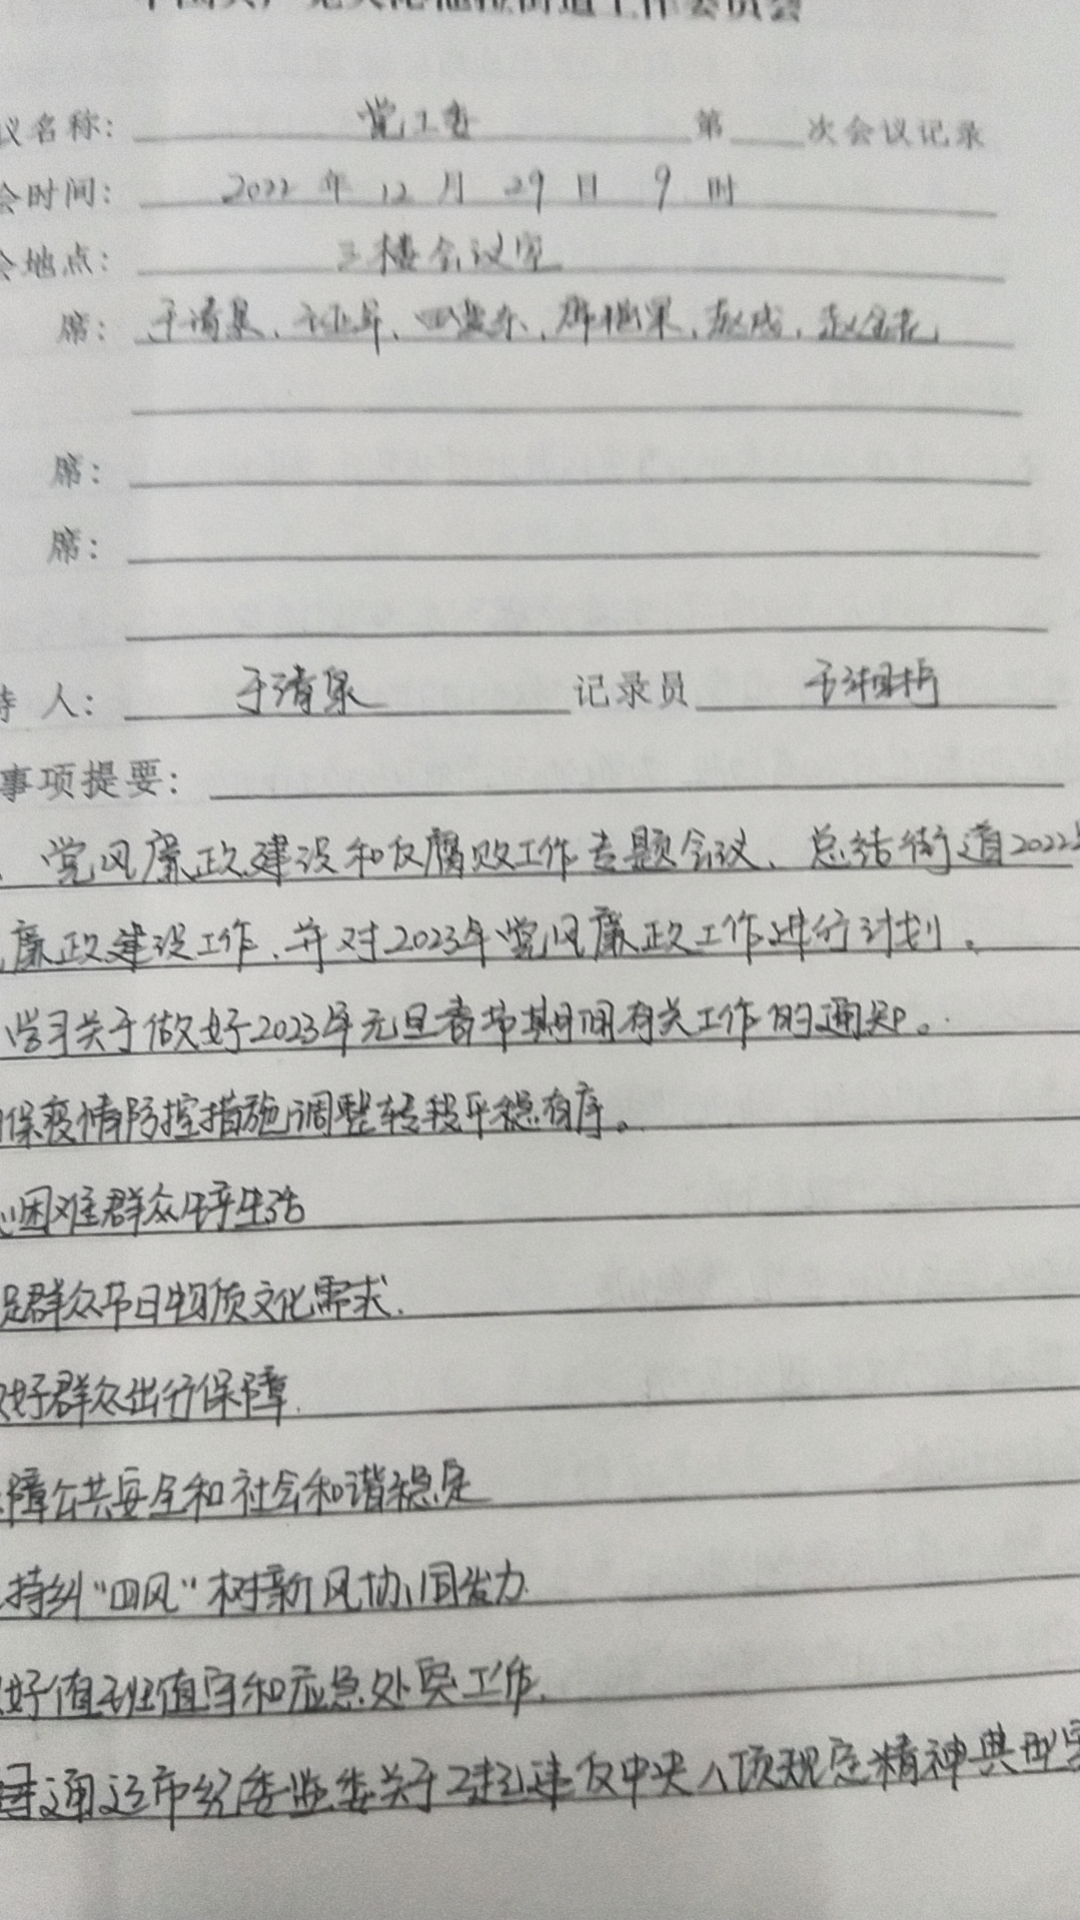 议名称: 党工委 第 次会议记录
会时间: 2022 年 12 月 29 日 9 时
会地点: 三楼会议室
席: 于清泉、
席:
席:
持 人: 于清泉 记录员
事项提要:
党风廉政建设和反腐败工作专题会议、总结街道2022年
廉政建设工作,并对2023年党风廉政工作进行计划。
学习关于做好2023年元旦春节期间有关工作的通知。
保疫情防控措施调整转段平稳有序。
心困难群众生活
足群众节日物质文化需求.
好群众出行保障.
障公共安全和社会和谐稳定
持纠“四风”树新风协同发力
好值班值守和应急处突工作.
通辽市纪委监委关于2起违反中央八项规定精神典型案